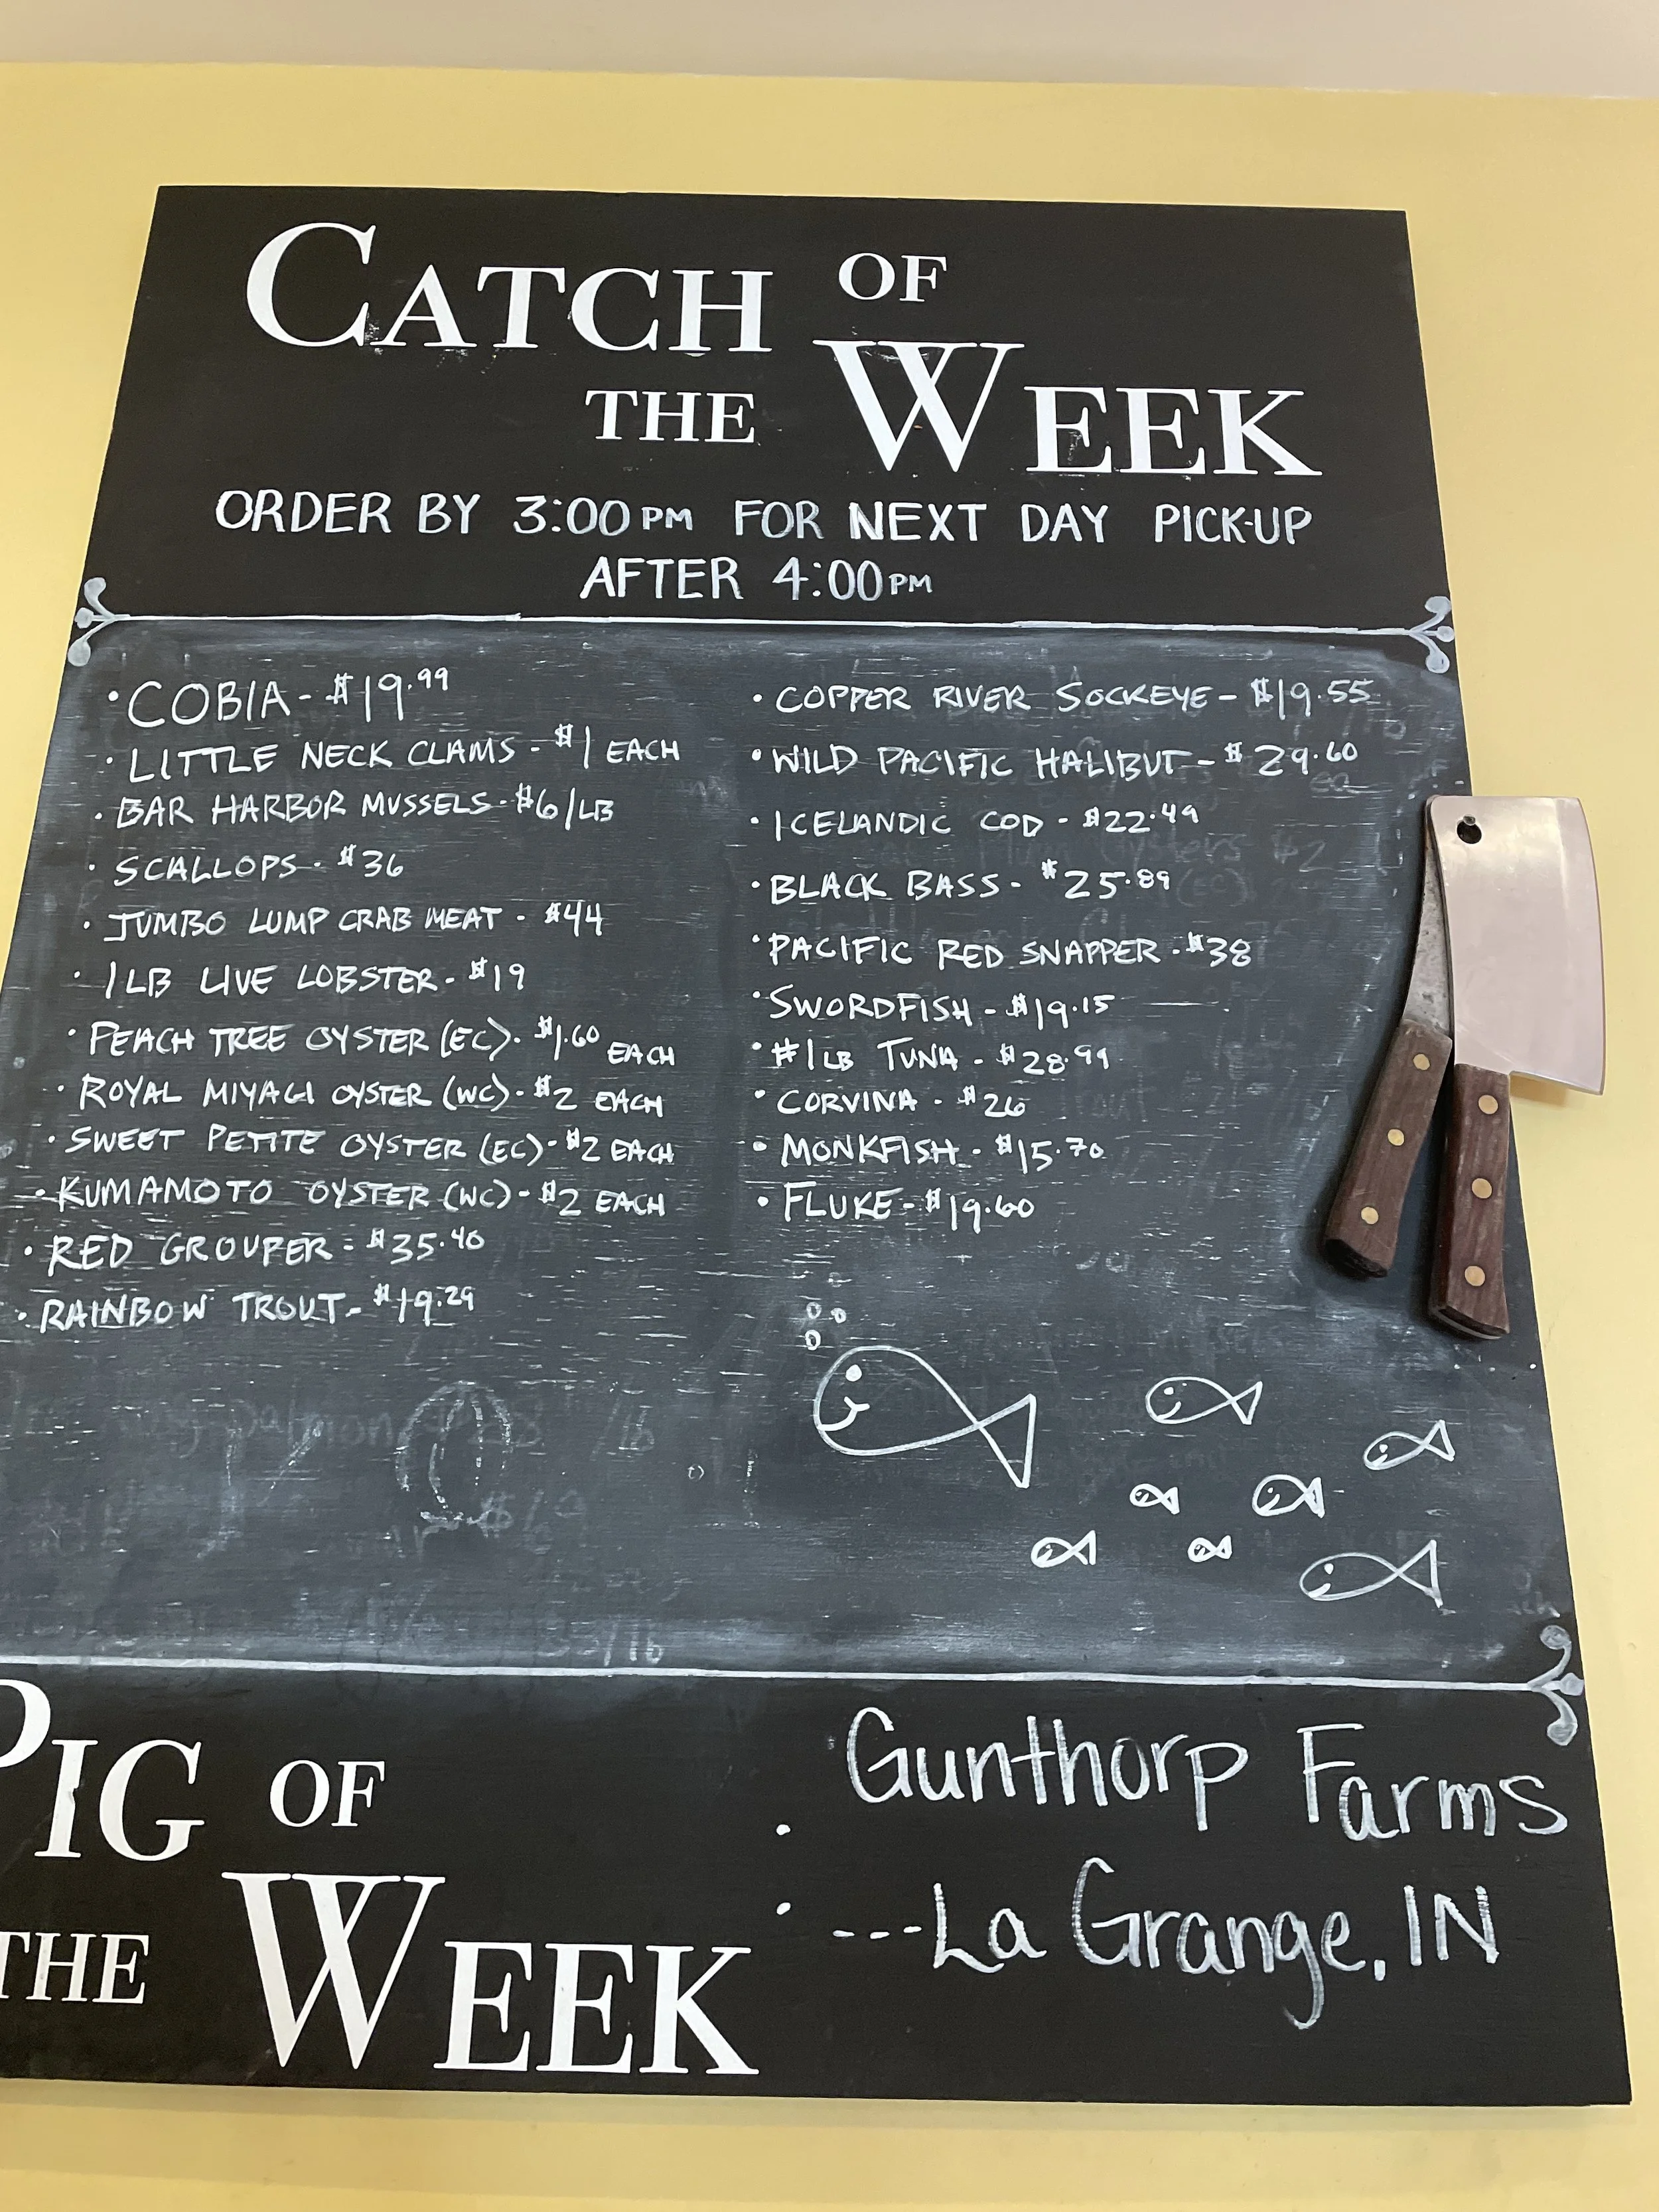 CATCH OF
THE WEEK
ORDER BY 3:00 PM FOR NEXT DAY PICK-UP
AFTER 4:00 PM
• COBIA - $19.99
• LITTLE NECK CLAMS - $1 EACH
• BAR HARBOR MUSSELS - $6/LB
• SCALLOPS - $36
• JUMBO LUMP CRAB MEAT - $44
• 1 LB LIVE LOBSTER - $19
• PEACH TREE OYSTER (EC) - $1.60 EACH
• ROYAL MIYAGI OYSTER (WC) - $2 EACH
• SWEET PETITE OYSTER (EC) - $2 EACH
• KUMAMOTO OYSTER (WC) - $2 EACH
• RED GROUPER - $35.40
• RAINBOW TROUT - $19.29
• COPPER RIVER SOCKEYE - $19.55
• WILD PACIFIC HALIBUT - $29.60
• ICELANDIC COD - $22.49
• BLACK BASS - $25.89
• PACIFIC RED SNAPPER - $38
• SWORDFISH - $19.15
• #1 LB TUNA - $28.99
• CORVINA - $26
• MONKFISH - $15.70
• FLUKE - $19.60
PIG OF
THE WEEK
: Gunthorp Farms
---La Grange, IN